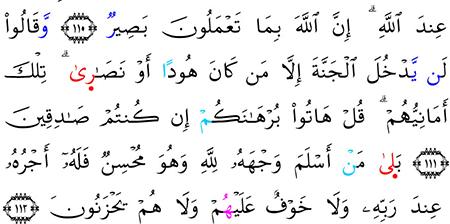 عِندَ ٱللَّهِ ۗ إِنَّ ٱللَّهَ بِمَا تَعْمَلُونَ بَصِيرٌ ﴿١١٠﴾ وَقَالُوا۟
لَن يَدْخُلَ ٱلْجَنَّةَ إِلَّا مَن كَانَ هُودًا أَوْ نَصَـٰرَىٰ ۗ تِلْكَ
أَمَانِيُّهُمْ ۗ قُلْ هَاتُوا۟ بُرْهَـٰنَكُمْ إِن كُنتُمْ صَـٰدِقِينَ
﴿١١١﴾ بَلَىٰ مَنْ أَسْلَمَ وَجْهَهُۥ لِلَّهِ وَهُوَ مُحْسِنٌ فَلَهُۥٓ أَجْرُهُۥ
عِندَ رَبِّهِۦ وَلَا خَوْفٌ عَلَيْهِمْ وَلَا هُمْ يَحْزَنُونَ ﴿١١٢﴾